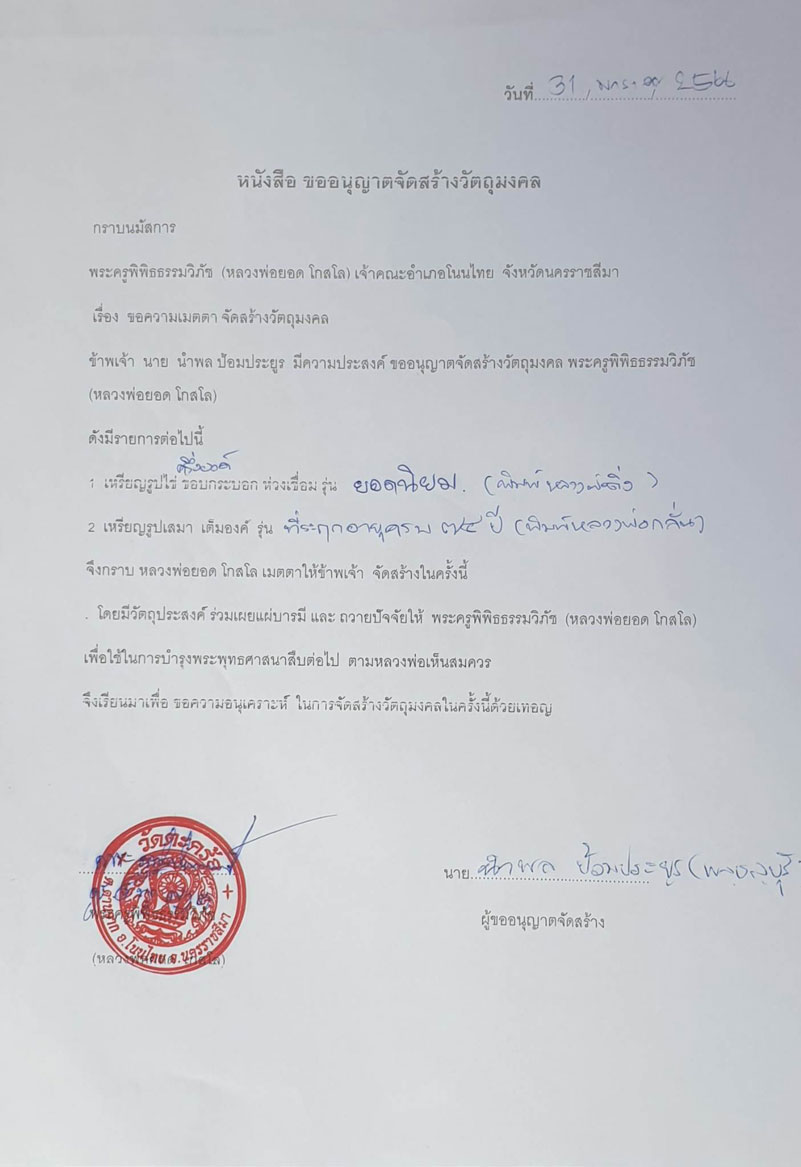 วันที่ 31, มกราคม 2566
หนังสือ ขออนุญาตจัดสร้างวัตถุมงคล
กราบนมัสการ
พระครูพิพิธธรรมวิภัช (หลวงพ่อยอด โกสโล) เจ้าคณะอำเภอโนนไทย จังหวัดนครราชสีมา
เรื่อง ขอความเมตตา จัดสร้างวัตถุมงคล
ข้าพเจ้า นาย นำพล ป้อมประยูร มีความประสงค์ ขออนุญาตจัดสร้างวัตถุมงคล พระครูพิพิธธรรมวิภัช
(หลวงพ่อยอด โกสโล)
ดังมีรายการต่อไปนี้
ครึ่งองค์
1 เหรียญรูปไข่ ขอบกระบอก ห่วงเชื่อม รุ่น ยอดนิยม. (พิมพ์หลวงพ่อ)
2 เหรียญรูปเสมา เต็มองค์ รุ่น ที่ระฤกอายุครบ ๗๕ ปี (พิมพ์หลวงพ่อกลั่น)
จึงกราบ หลวงพ่อยอด โกสโล เมตตาให้ข้าพเจ้า จัดสร้างในครั้งนี้
. โดยมีวัตถุประสงค์ ร่วมเผยแผ่บารมี และ ถวายปัจจัยให้ พระครูพิพิธธรรมวิภัช (หลวงพ่อยอด โกสโล)
เพื่อใช้ในการบำรุงพระพุทธศาสนาสืบต่อไป ตามหลวงพ่อเห็นสมควร
จึงเรียนมาเพื่อ ขอความอนุเคราะห์ ในการจัดสร้างวัตถุมงคลในครั้งนี้ด้วยเทอญ
วัดตะคร้อ
อ.โนนไทย จ.นครราชสีมา
(หลวงพ่อยอด โกสโล)
นาย นำพล ป้อมประยูร (พลลพบุรี)
ผู้ขออนุญาตจัดสร้าง